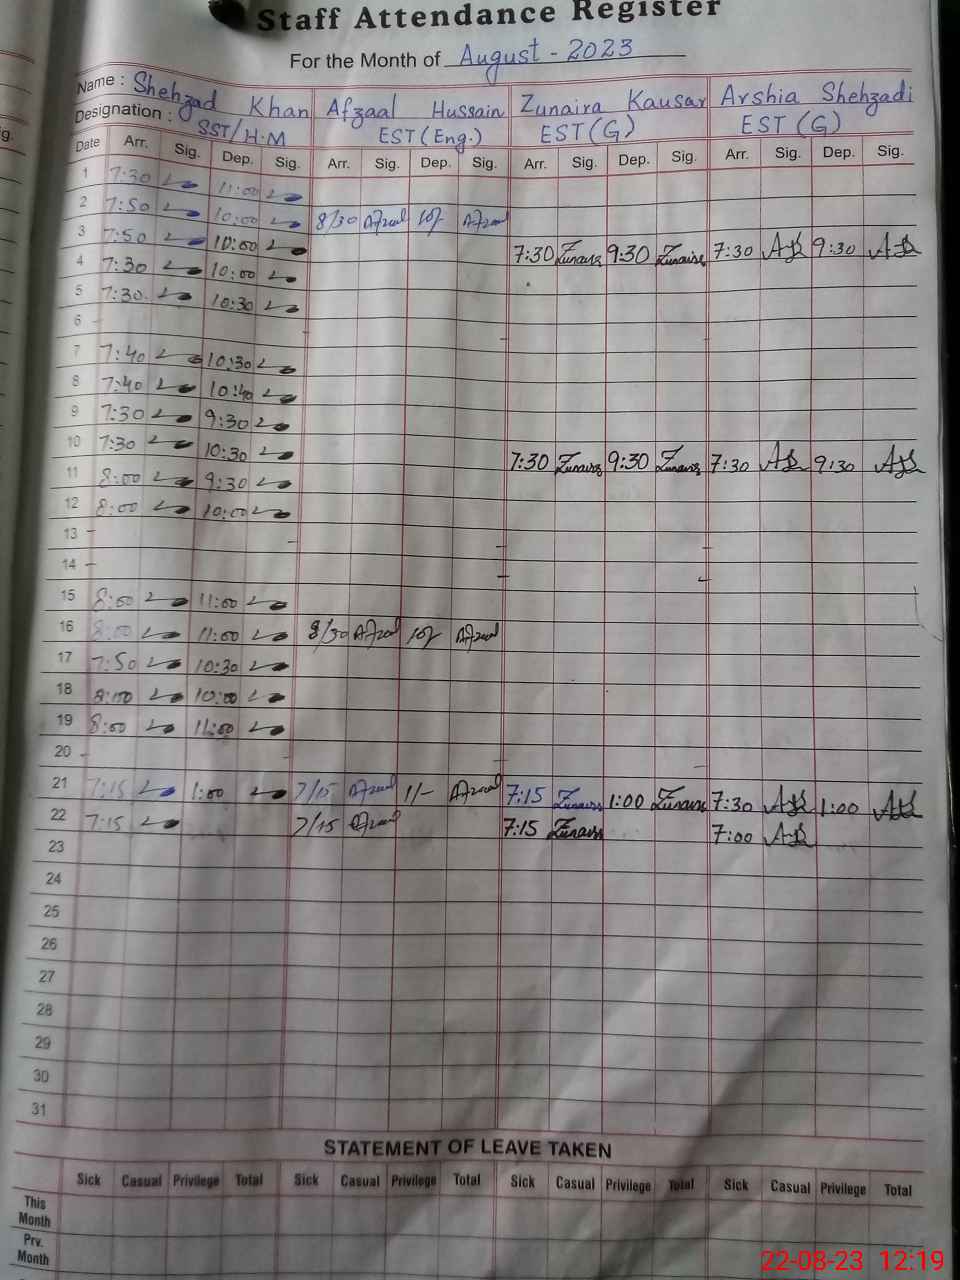 Staff Attendance Register
For the Month of August - 2023
Name : Shehzad Khan Afzaal Hussain Zunaira Kausar Arshia Shehzadi
Designation : SST/H.M EST (Eng.) EST (G) EST (G)
Date Arr. Sig. Dep. Sig. Arr. Sig. Dep. Sig. Arr. Sig. Dep. Sig. Arr. Sig. Dep. Sig.
1 7:30 11:00
2 7:50 10:00 8/30 Afzaal 10/ Afzaal
3 7:50 10:00 7:30 Zunaira 9:30 Zunaira 7:30 9:30
4 7:30 10:00
5 7:30 10:30
6 -
7 7:40 10:30
8 7:40 10:40
9 7:30 9:30
10 7:30 10:30 7:30 Zunaira 9:30 Zunaira 7:30 9:30
11 8:00 9:30
12 8:00 10:00
13 - - - -
14 - - -
15 8:00 11:00
16 8:00 11:00 8/30 Afzaal 10/ Afzaal
17 7:50 10:30
18 8:00 10:00
19 8:00 11:00
20 - - - -
21 7:15 1:00 7/15 Afzaal 1/- Afzaal 7:15 Zunaira 1:00 Zunaira 7:30 1:00
22 7:15 7/15 Afzaal 7:15 Zunaira 7:00
23
24
25
26
27
28
29
30
31
STATEMENT OF LEAVE TAKEN
Sick Casual Privilege Total Sick Casual Privilege Total Sick Casual Privilege Total Sick Casual Privilege Total
This Month
Prv. Month
22-08-23 12:19